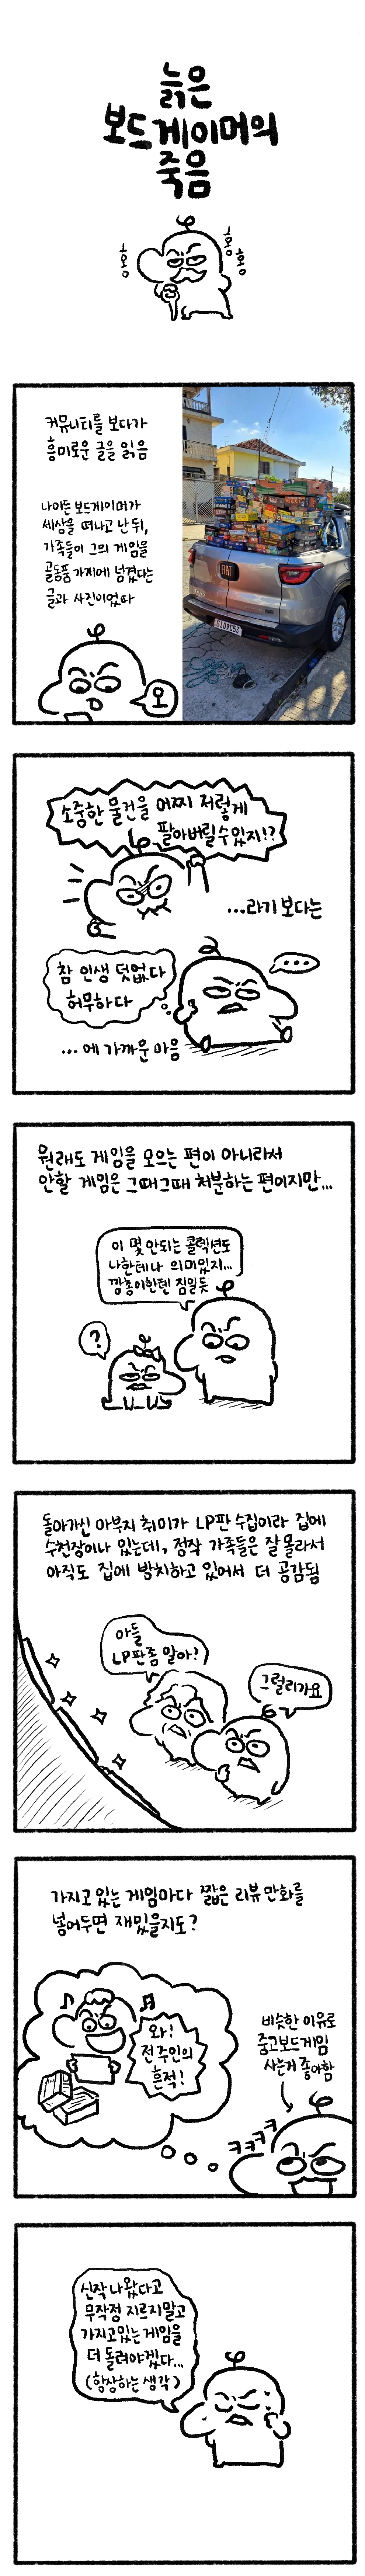 늙은
보드게이머의
죽음
홍
홍
홍
커뮤니티를 보다가
흥미로운 글을 읽음
나이든 보드게이머가
세상을 떠나고 난 뒤,
가족들이 그의 게임을
골동품 가게에 넘겼다는
글과 사진이었다
오
FIAT
소중한 물건을 어찌 저렇게
팔아버릴수있지!?
...라기 보다는
참 인생 덧없다
허무하다
...
...에 가까운 마음
원래도 게임을 모으는 편이 아니라서
안할 게임은 그때그때 처분하는 편이지만...
이 몇 안되는 콜렉션도
나한테나 의미있지...
깡총이한텐 짐일듯
?
돌아가신 아부지 취미가 LP판 수집이라 집에
수천장이나 있는데, 정작 가족들은 잘 몰라서
아직도 집에 방치하고 있어서 더 공감됨
아들
LP판좀 말아?
그럴리가요
가지고 있는 게임마다 짧은 리뷰 만화를
넣어두면 재밌을지도?
와!
전주인의
흔적!
비슷한 이유로
중고보드게임
사는거 좋아함
ㅋㅋㅋㅋ
신작 나왔다고
무작정 지르지말고
가지고있는 게임을
더 돌려야겠다...
(항상하는 생각)